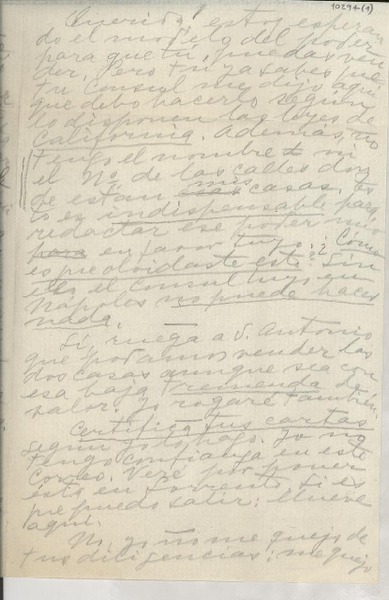 10294(1)
Querida: estoy esperan
do el modelo del poder
para que tú puedas ven
der, pero tú ya sabes que
tu Consul me dijo aquí
que debo hacerlo según
lo disponen las leyes de
California. Además, no
tengo el nombre ni
el No. de las calles don
de están mis casas. Es
to es indispensable para
redactar ese poder mío
para en favor tuyo. ¿Cómo
es que olvidaste esto? Sin
ello el Consul tuyo en
Nápoles no puede hacer
nada.
Sí, ruega a S. Antonio
que podamos vender las
dos casas aunque sea con
esa baja tremenda de
valor. Yo rogaré también.
Certifica tus cartas
según yo lo hago. Yo no
tengo confianza en este
Correo. Veré por poner
esta en Sorrento si es
que puedo salir: llueve
aquí.
No, yo no me quejo de
tus diligencias: me quejo